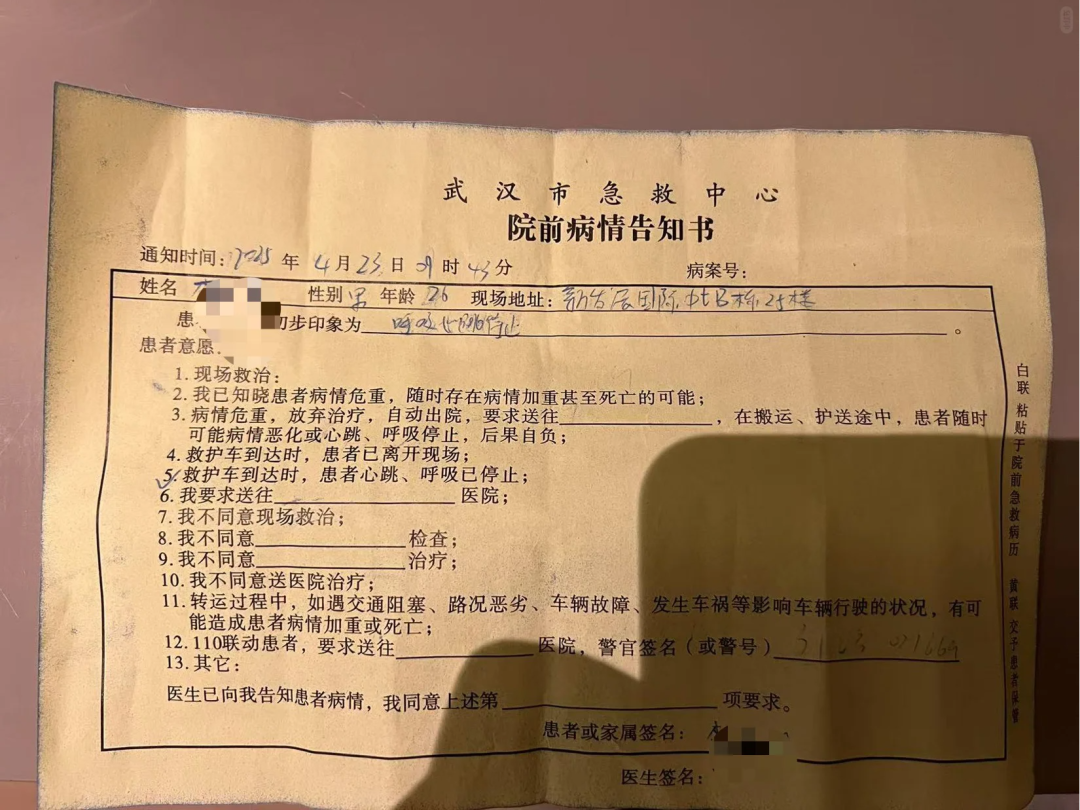 武汉市急救中心
院前病情告知书
通知时间:2025年4月23日09时43分
病案号:
姓名 性别 男 年龄 26 现场地址:新发展国际中心B栋25楼
患 初步印象为 呼吸心跳停止 。
患者意愿:
1. 现场救治:
2. 我已知晓患者病情危重,随时存在病情加重甚至死亡的可能;
3. 病情危重,放弃治疗,自动出院,要求送往 ,在搬运、护送途中,患者随时
可能病情恶化或心跳、呼吸停止,后果自负;
4. 救护车到达时,患者已离开现场;
5. 救护车到达时,患者心跳、呼吸已停止;
6. 我要求送往 医院;
7. 我不同意现场救治;
8. 我不同意 检查;
9. 我不同意 治疗;
10. 我不同意送医院治疗;
11. 转运过程中,如遇交通阻塞、路况恶劣、车辆故障、发生车祸等影响车辆行驶的状况,有可
能造成患者病情加重或死亡;
12. 110联动患者,要求送往 医院,警官签名(或警号)
13. 其它:
医生已向我告知患者病情,我同意上述第 项要求。
患者或家属签名:
医生签名:
白联 粘贴于院前急救病历 黄联 交予患者保管